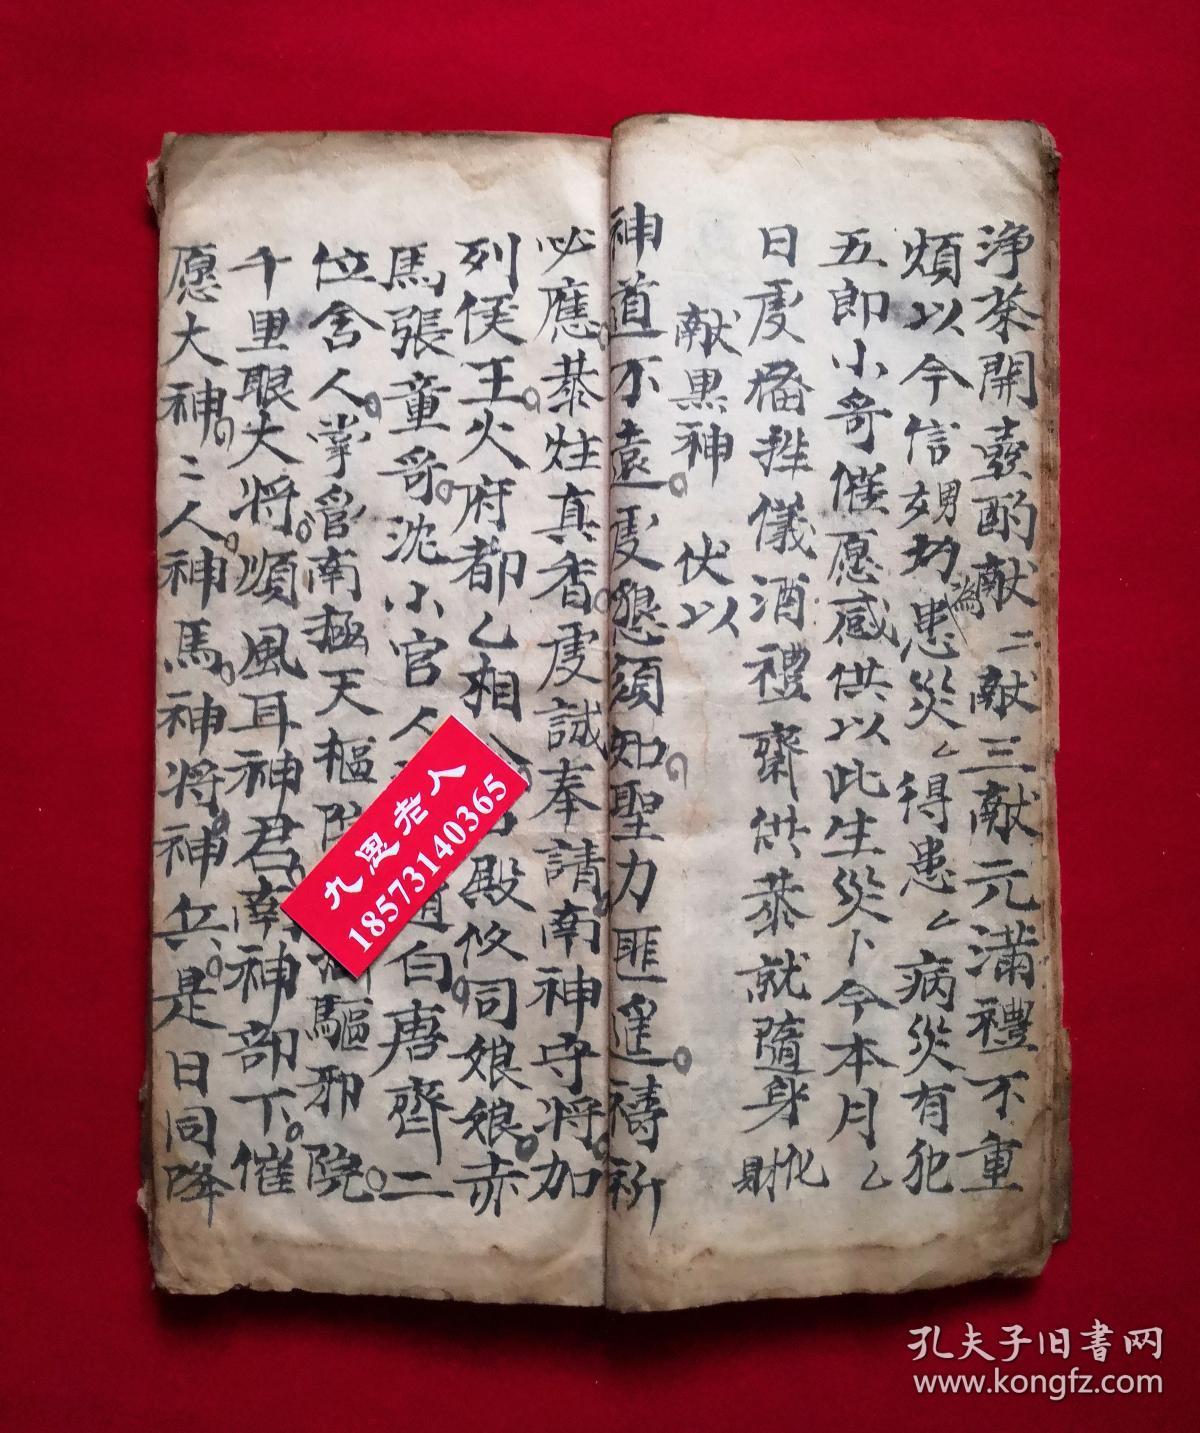 浄茶開壺酌献二献三献元满禮不重
煩以今信甥切為患災〻得患〻病災有犯
五郎小哥催愿感供以此生災卜今本月厶
日虔備牲儀酒禮齋供恭就隨身化財
献黑神 伏以
神道不遠虔懇須知聖力匪遥禱祈
必應恭炷真香虔誠奉請南神守将加
列侯王火府都乙相公 殿佟同娘娘赤
馬張童哥沈小官人 道白唐齊二
位舍人掌管南极天樞院 驅邪院
千里眼大将順風耳神君南神部下催
愿大神二人神馬神将神兵是日同降
九恩老人
18573140365
孔夫子旧书网
www.kongfz.com